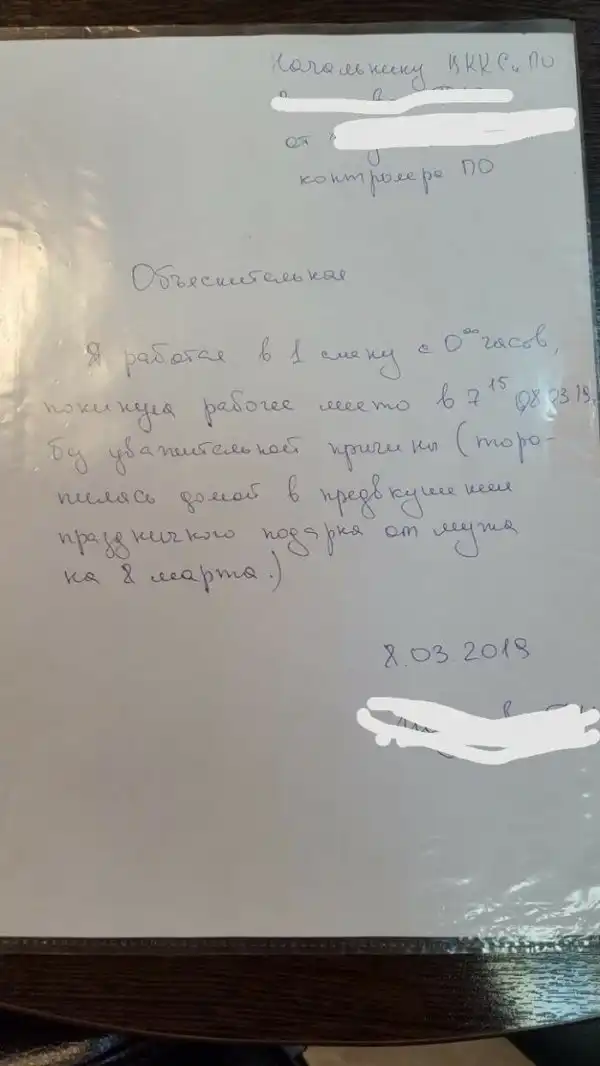 Начальнику ВККСиПО
от
контролера ПО
Объяснительная
Я работая в 1 смену с 0⁰⁰ часов,
покинула рабочее место в 7¹⁵ 08.03.19.
бу уважительной причины (торо-
пилась домой в предвкушении
праздничного подарка от мужа
на 8 марта.)
8.03.2019